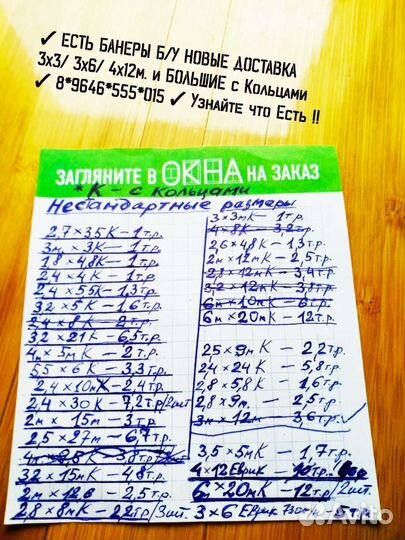 ✓ ЕСТЬ БАНЕРЫ Б/У НОВЫЕ ДОСТАВКА
3х3/ 3х6/ 4х12м. и БОЛЬШИЕ с Кольцами
✓ 8*9646*555*015 ✓ Узнайте что Есть !!
ЗАГЛЯНИТЕ В ОКНА НА ЗАКАЗ
*К - с кольцами
Нестандартные размеры
2.7×3.5К - 1т.р.
3м × 3К - 1т.р.
1.8 × 4,8К - 1т.р.
2.4 × 4К - 1т.р.
2.4 × 5.5К - 1,3т.р.
3.2 × 5К - 1.6т.р.
2,4 × 8К - 2т.р.
3.2 × 21К - 6,5т.р.
4м × 5мК - 2т.р.
5.5 × 6К - 3,3т.р.
2,4 × 10мК - 2.4т.р.
2,4 × 30К - 7,2т.р/2шт
2м × 15м - 3т.р.
2,5 × 27м - 6,7т.р.
3.2 × 15мК - 4.8т.р.
2м × 12,6 - 2,5т.р.
2,8 × 8мК - 2.2т.р/3шт.
3×3мК - 1т.р.
4×8К - 3,2т.р.
2,6 × 4,8К - 1,3т.р.
2м × 12мК - 2,5т.р.
2,8 × 12мК - 3,4т.р.
3,2 × 12мК - 3,8т.р.
6м × 10мК - 6т.р.
6м × 20мК - 12т.р.
2,5 × 9мК - 2,2т.р.
24 × 24К - 5,8т.р.
2,8 × 5,8К - 1,6т.р.
2,8 × 9м. - 2,5т.р.
3м × 12м - 3,6т.р.
3,5 × 5мК - 1,7т.р.
4 × 12Еврик - 10т.р.
6м × 20мК - 12т.р/2шт.
3 × 6 Еврик 730
Avito